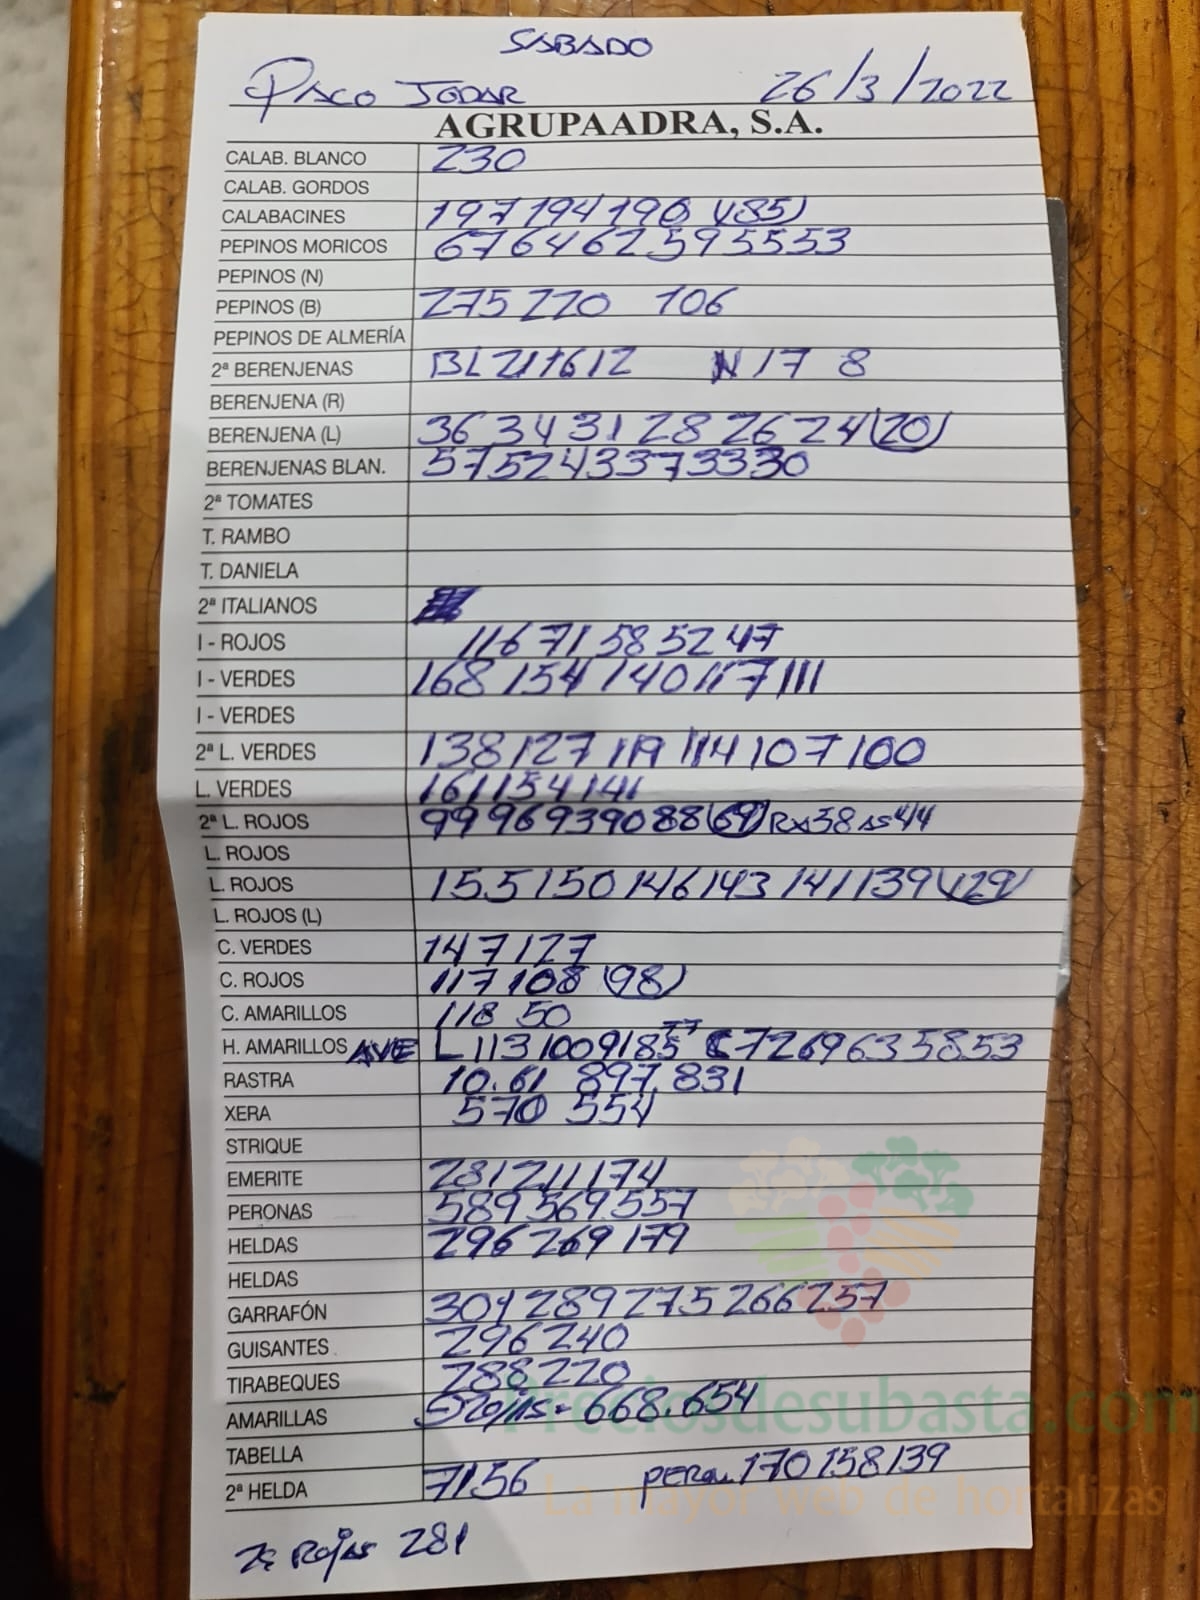 SABADO
PACO JODAR 26/3/2022
AGRUPAADRA, S.A.
CALAB. BLANCO 230
CALAB. GORDOS
CALABACINES 197 194 190 (185)
PEPINOS MORICOS 67 64 62 59 55 53
PEPINOS (N)
PEPINOS (B) 275 220 106
PEPINOS DE ALMERÍA
2ª BERENJENAS BL 21 16 12 N 17 8
BERENJENA (R)
BERENJENA (L) 36 34 31 28 26 24 (20)
BERENJENAS BLAN. 57 52 43 37 33 30
2ª TOMATES
T. RAMBO
T. DANIELA
2ª ITALIANOS
I - ROJOS 116 71 58 52 47
I - VERDES 168 154 140 117 111
I - VERDES
2ª L. VERDES 138 127 119 114 107 100
L. VERDES 161 154 141
2ª L. ROJOS 99 96 93 90 88 (69) Rx 38 AS 44
L. ROJOS
L. ROJOS 155 150 146 143 141 139 (129)
L. ROJOS (L)
C. VERDES 147 127
C. ROJOS 117 108 (98)
C. AMARILLOS 118 50
H. AMARILLOS AVE L 113 100 91 85 77 C 72 69 63 58 53
RASTRA 10.61 897.831
XERA 570 554
STRIQUE
EMERITE 281 211 174
PERONAS 589 569.557
HELDAS 296 269 179
HELDAS
GARRAFÓN 301 289 275 266 257
GUISANTES 296 240
TIRABEQUES 288 220
AMARILLAS 668.654
TABELLA
2ª HELDA 71 56 PERA 170 158 139
2ª ROJAS 281
Preciosdesubasta.com
La mayor web de hortalizas